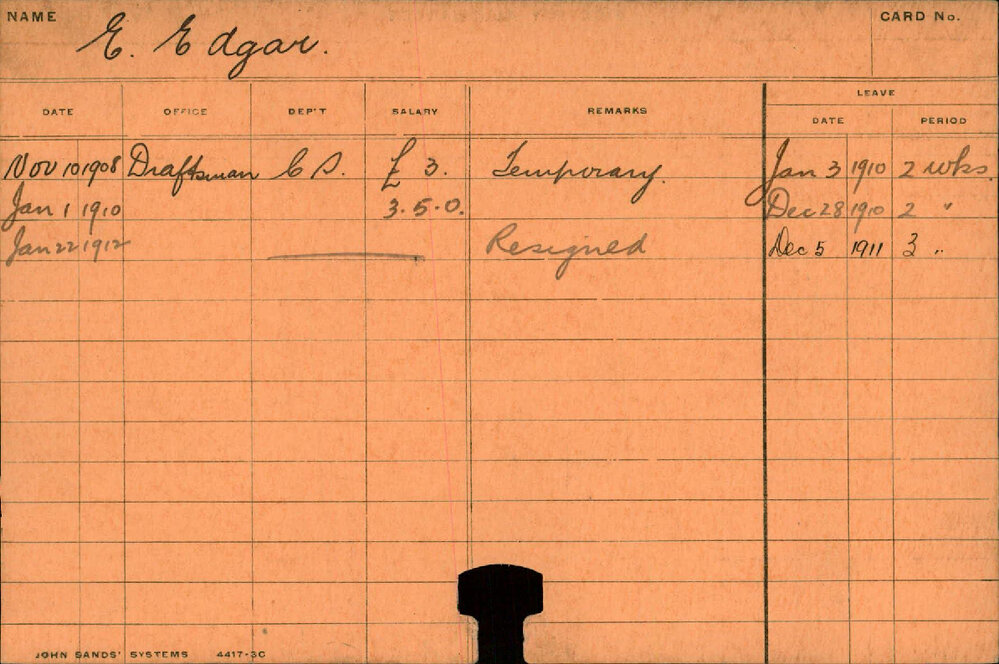 NAME E. Edgar. CARD No.
LEAVE
DATE OFFICE DEP'T SALARY REMARKS DATE PERIOD
Nov 10 1908 Draftsman C S. £ 3. Temporary. Jan 3 1910 2 wks.
Jan 1 1910 3.5.0. Dec 28 1910 2 "
Jan 22 1912 Resigned Dec 5 1911 3 "
JOHN SANDS' SYSTEMS 4417-3C